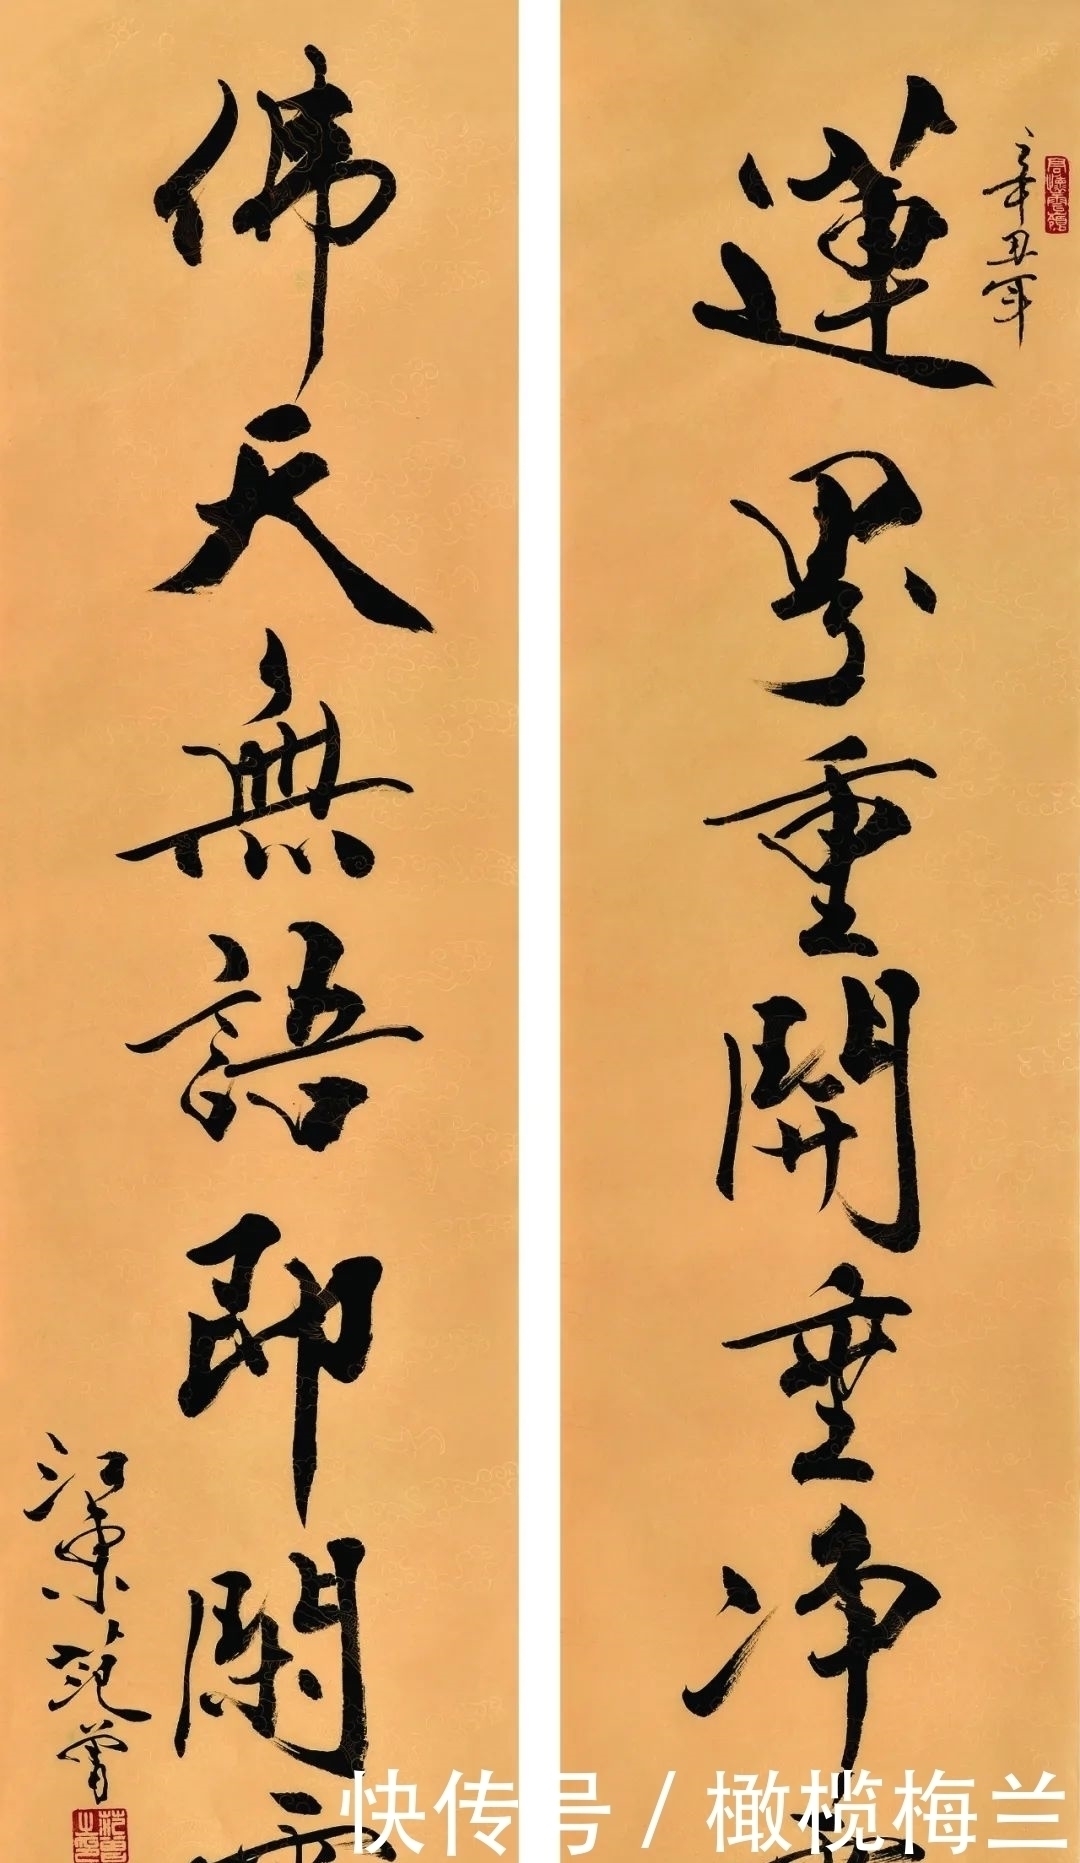 辛丑年
蓮界重開垂净
佛天無語即閑
江東范曾
快传号 / 橄榄梅兰